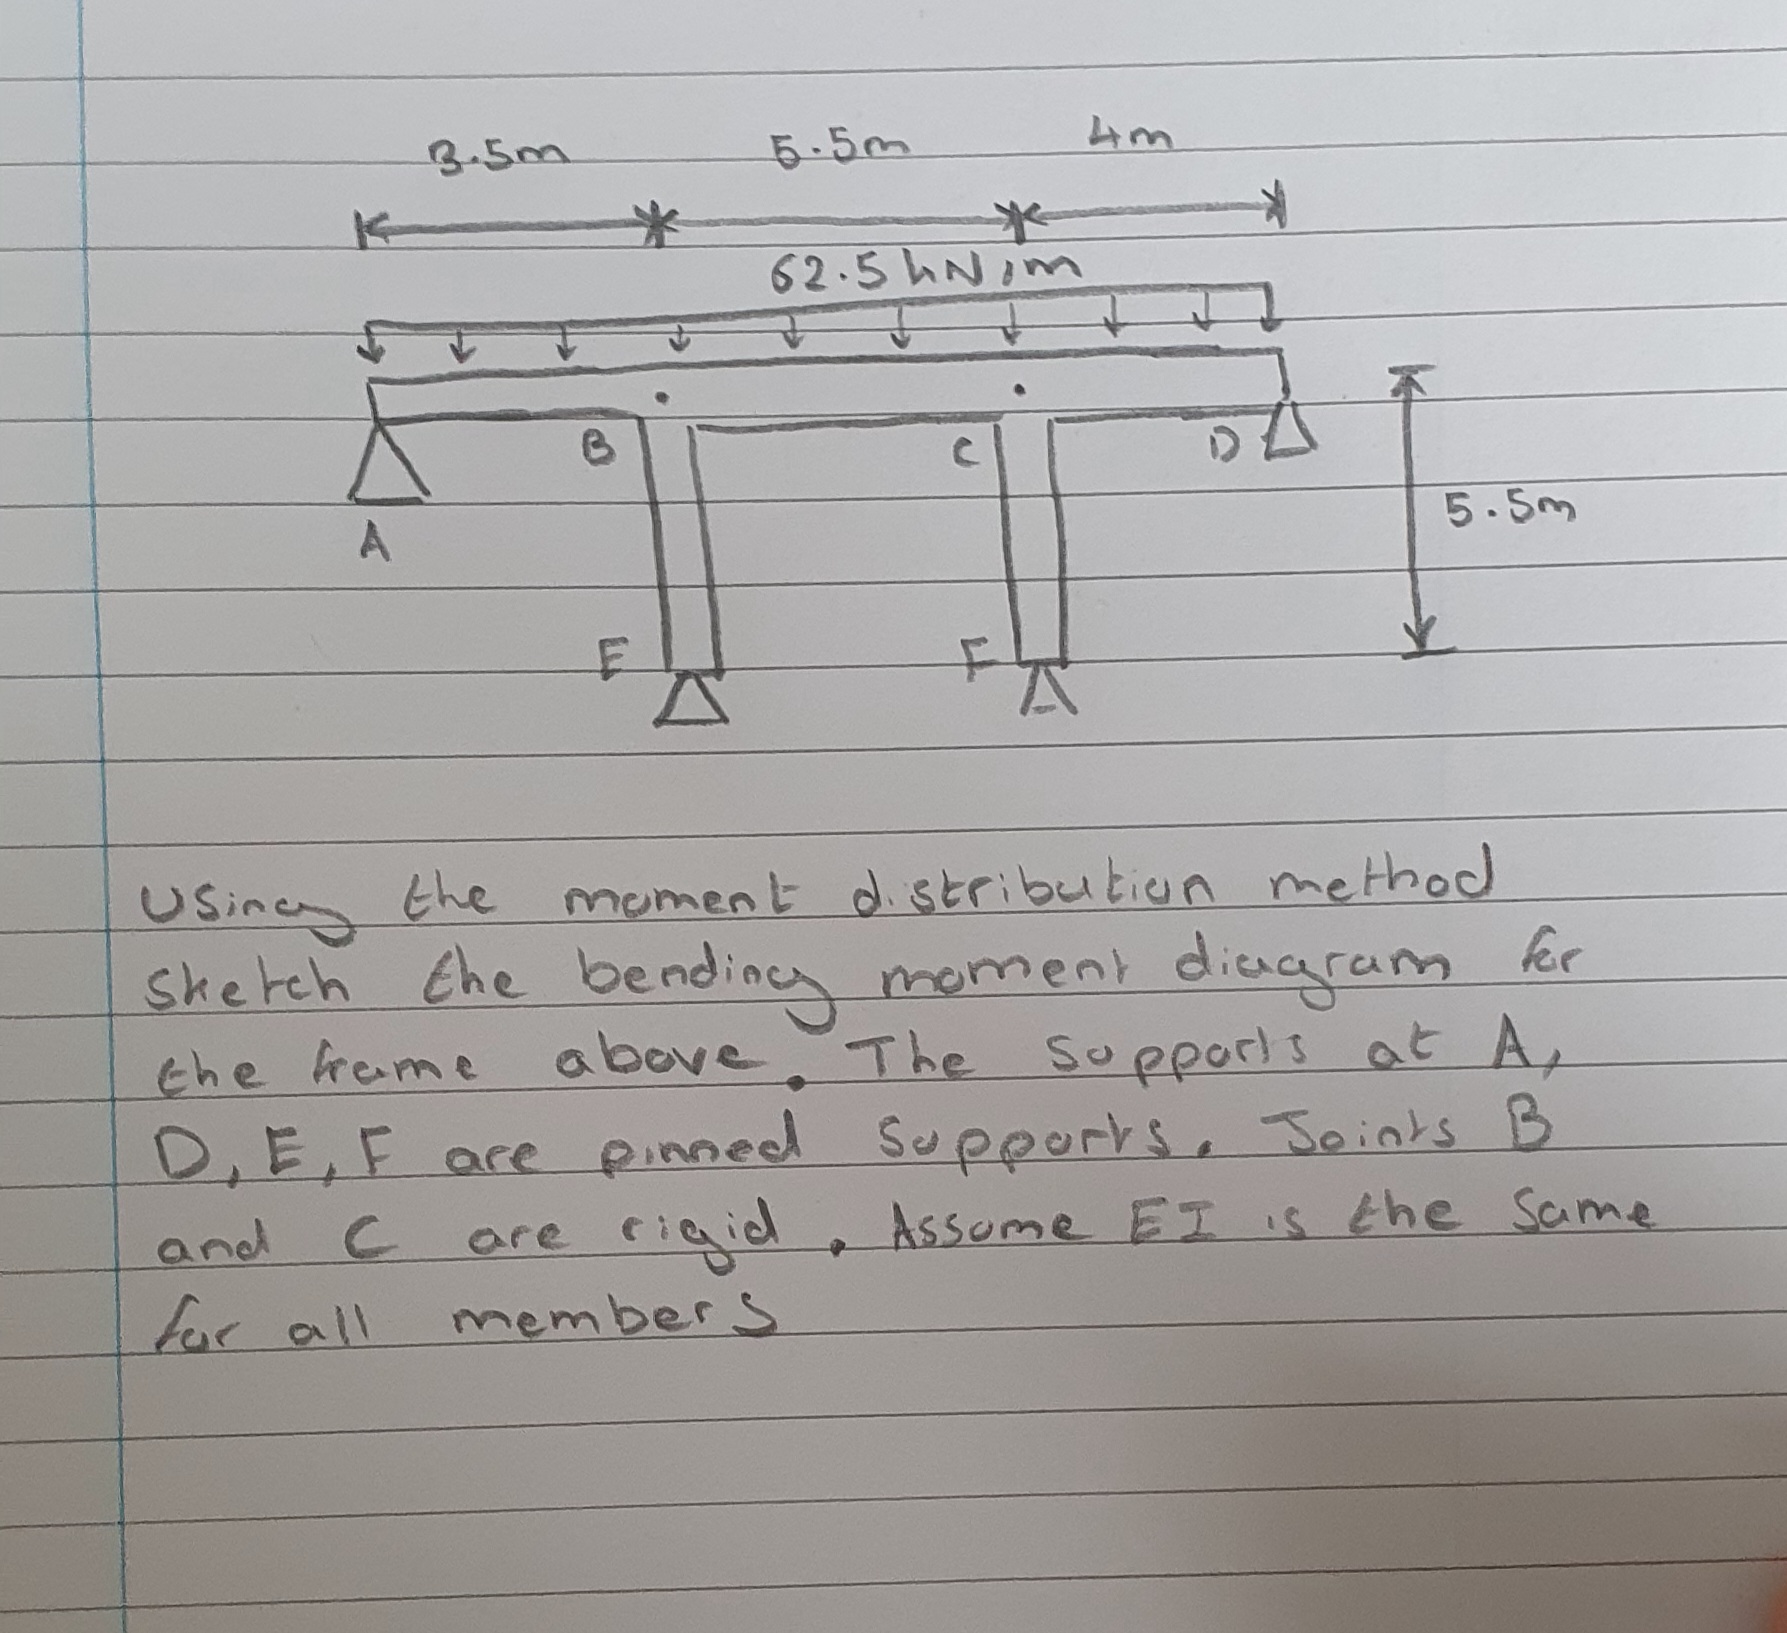 3.5m 5.5m 4m
62.5 kN/m
B C D
5.5m
A
E F
Using the moment distribution method
sketch the bending moment diagram for
the frame above. The supports at A,
D, E, F are pinned supports. Joints B
and C are rigid. Assume EI is the same
for all members